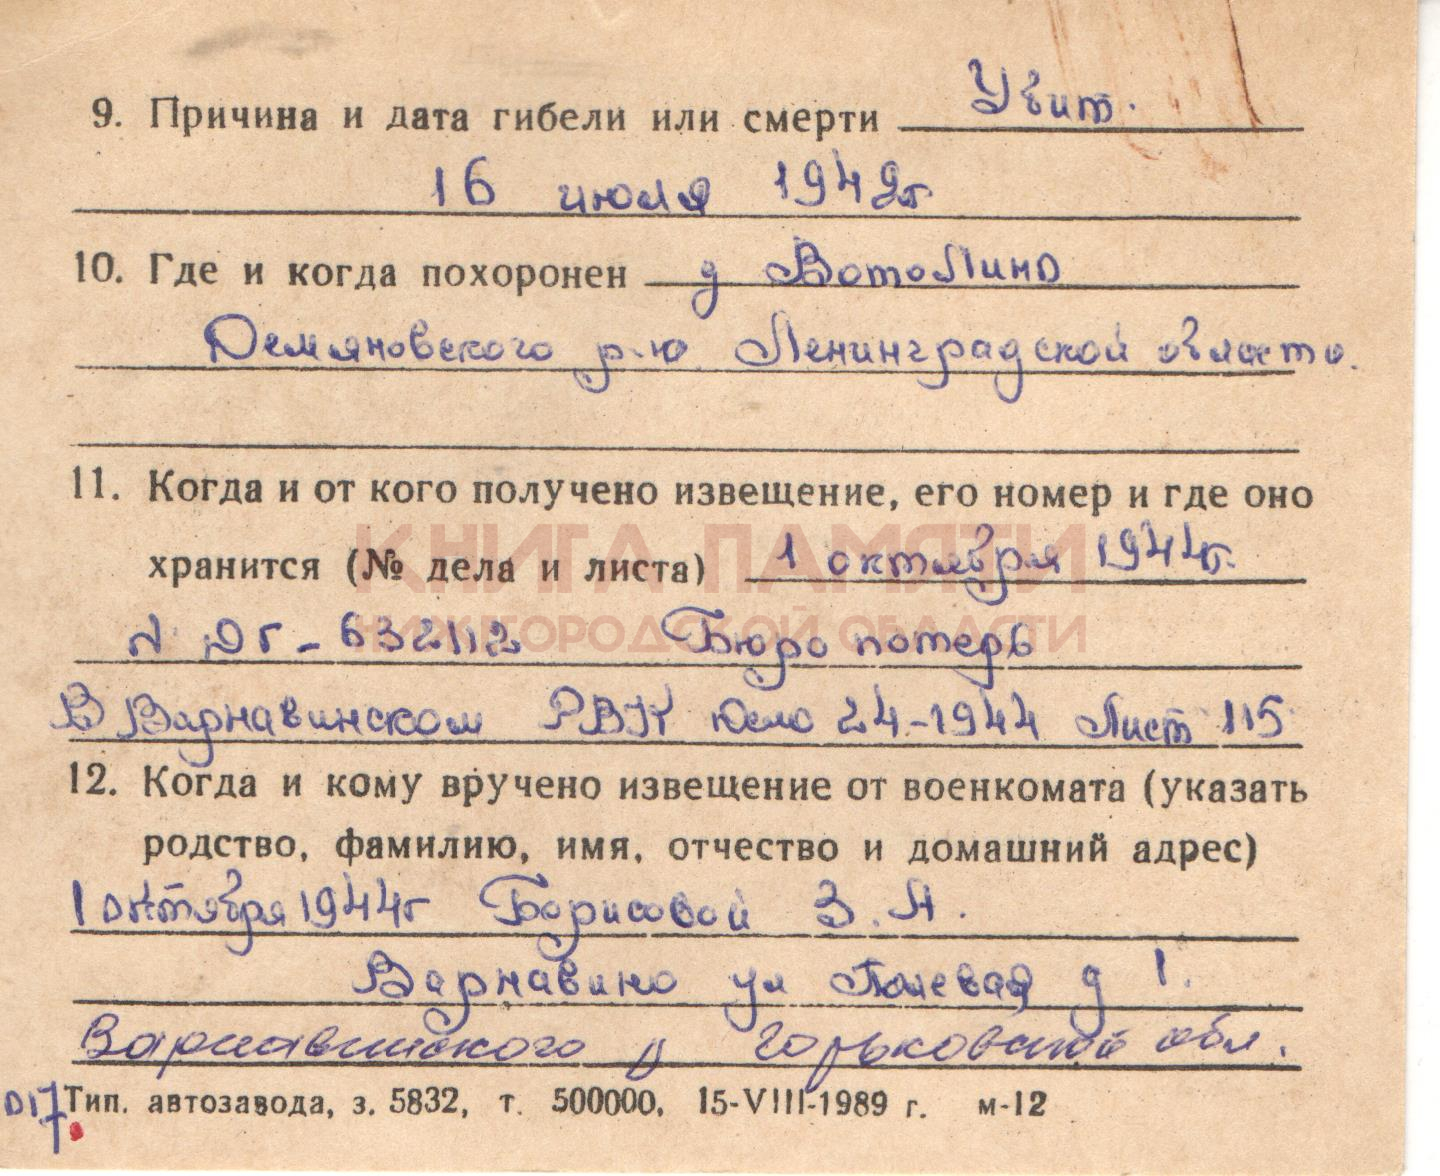 9. Причина и дата гибели или смерти Убит.
16 июля 1942г
10. Где и когда похоронен д Вотолино
Демяновского р-ю Ленинградской области.
11. Когда и от кого получено извещение, его номер и где оно
хранится (№ дела и листа) 1 октября 1944г.
КНИГА ПАМЯТИ
НИЖЕГОРОДСКОЙ ОБЛАСТИ
N Дг-632112 Бюро потерь
В Варнавинском РВК дело 24-1944 Лист 115
12. Когда и кому вручено извещение от военкомата (указать
родство, фамилию, имя, отчество и домашний адрес)
1 октября 1944г Борисовой З. А.
Варнавино ул Полевая д 1.
Варнавинского р Горьковской обл.
Тип. автозавода, з. 5832, т. 500000, 15-VIII-1989 г. м-12